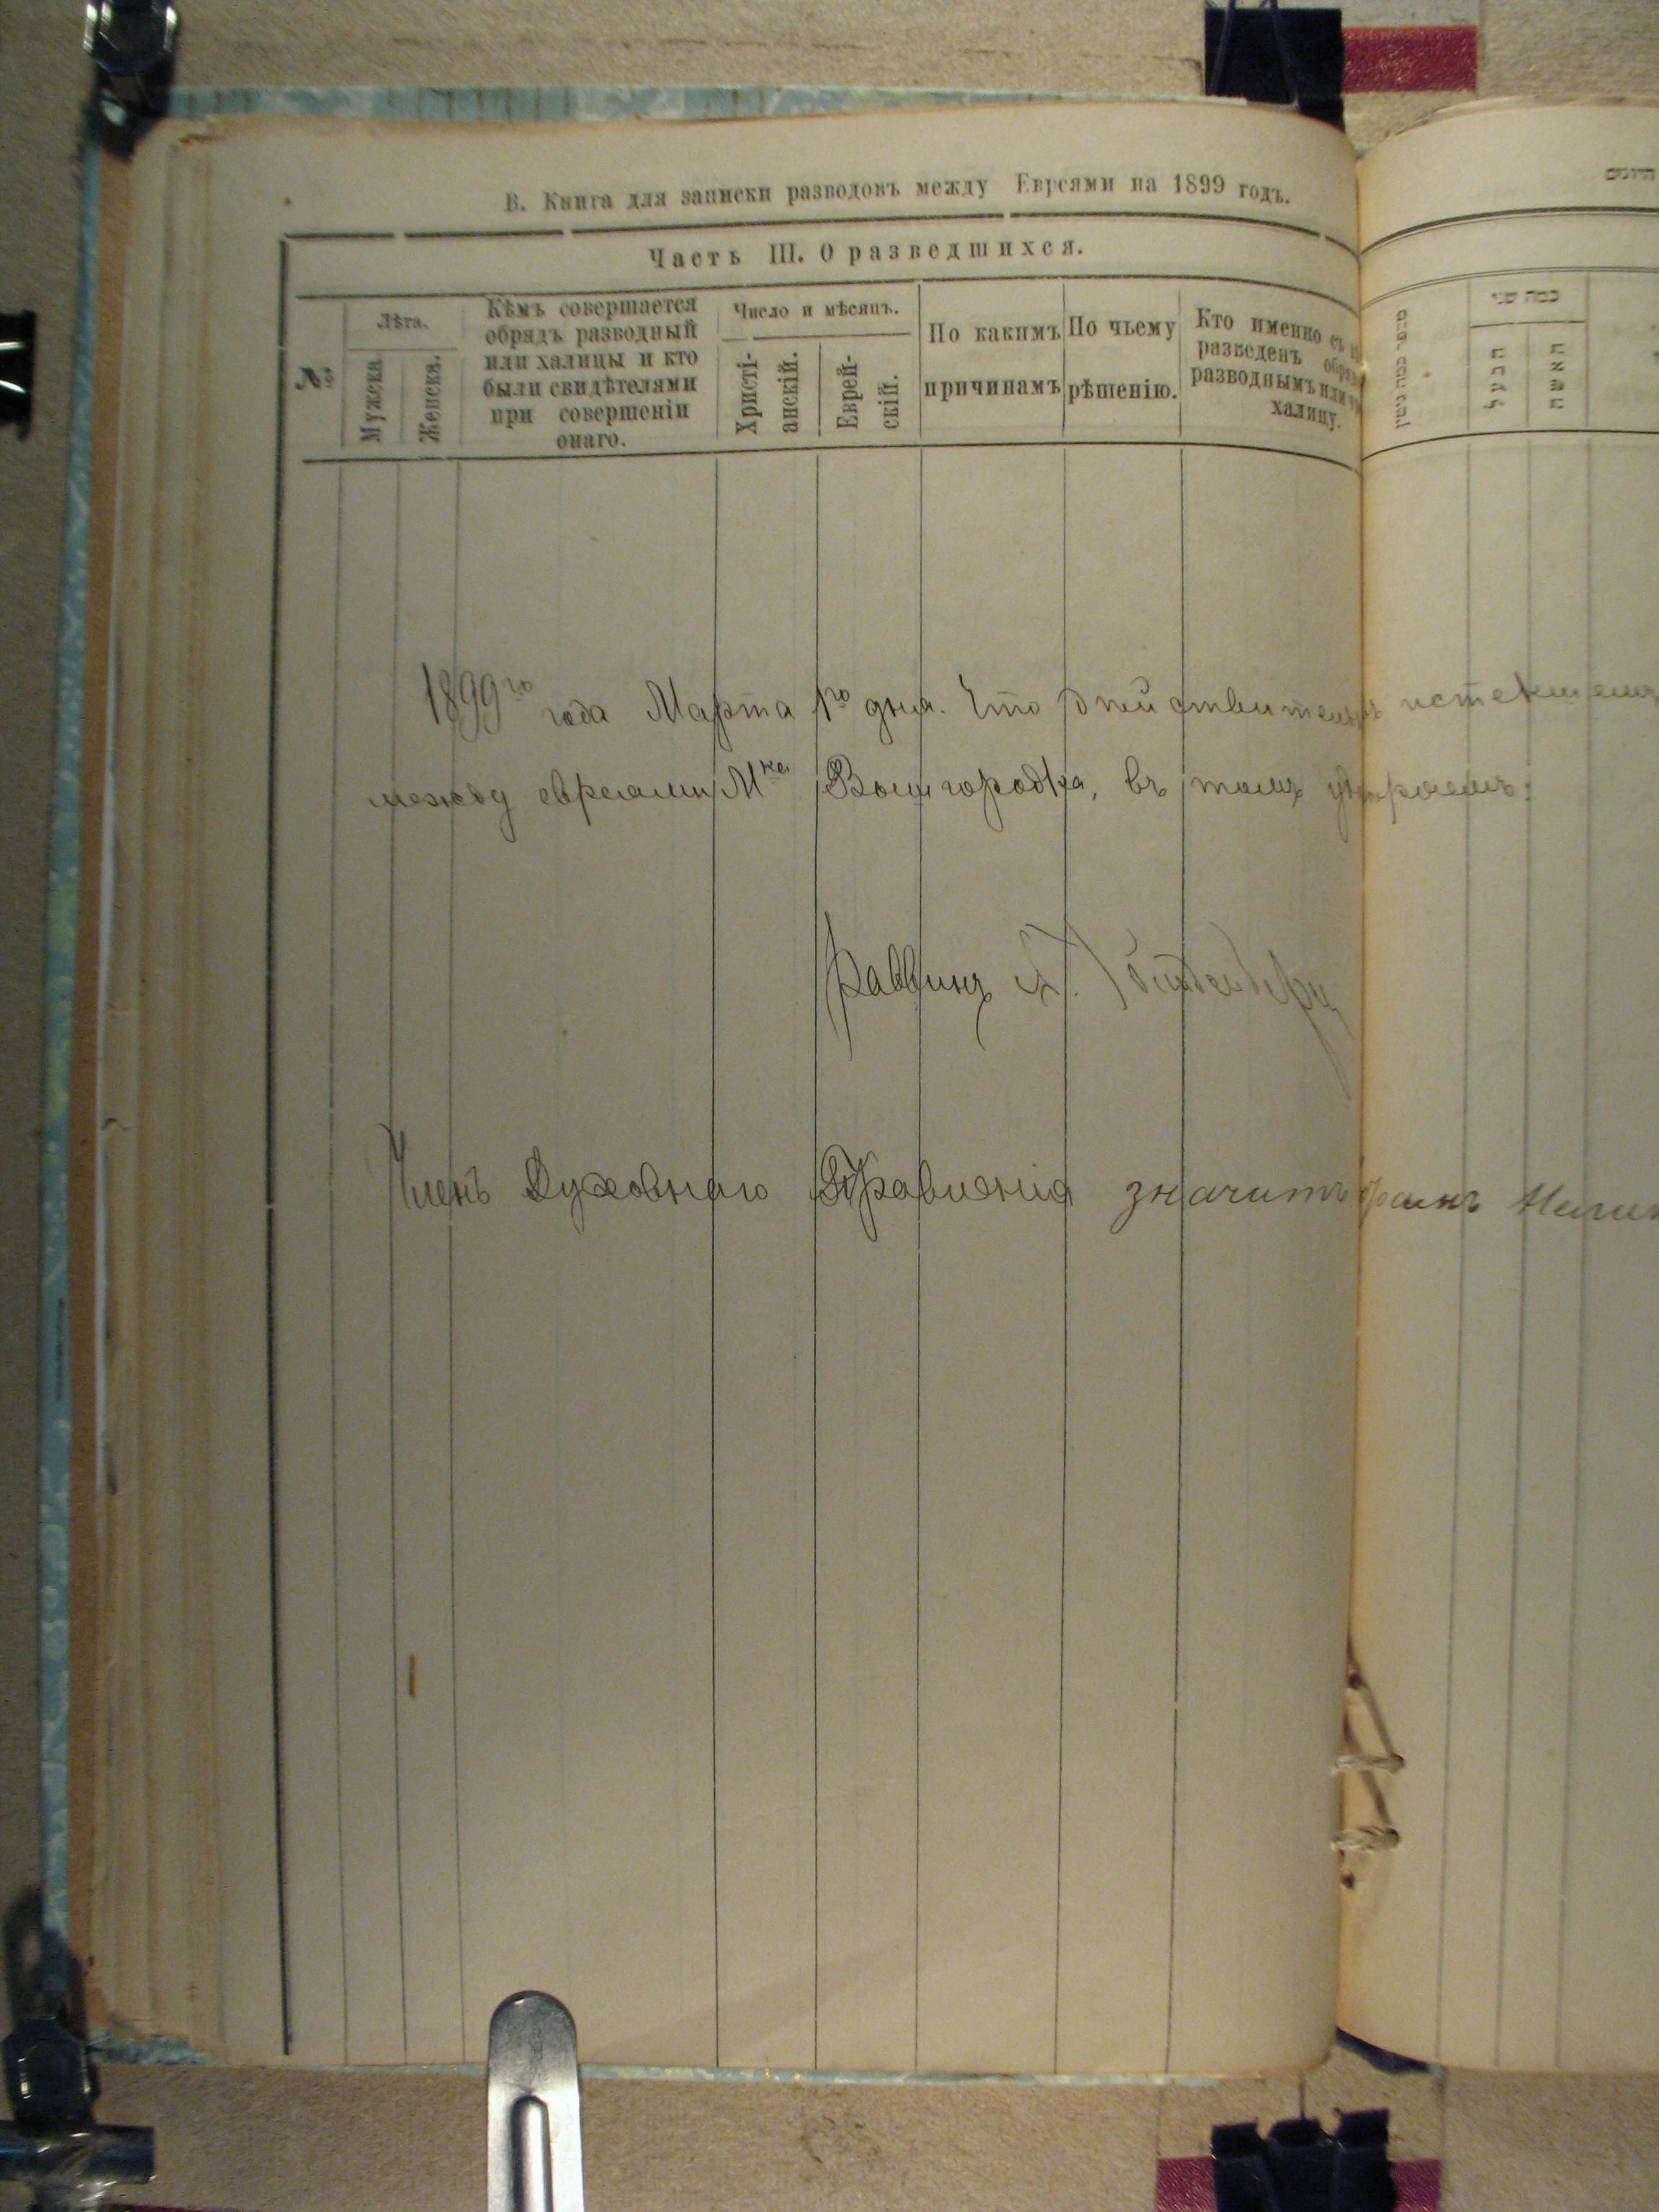 В. Книга для записки разводовъ между Евреями на 1899 годъ.
Часть III. О разведшихся.
№
Лѣта.
Мужеска
Женска.
Кѣмъ совершается
обрядъ разводный
или халицы и кто
были свидѣтелями
при совершеніи
онаго.
Число и мѣсяцъ.
Христі-
анскій.
Еврей-
скій.
По какимъ
причинамъ
По чьему
рѣшенію.
Кто именно съ
разведенъ
разводнымъ или
халицу.
כמה שני
הבעל
האשה
1899го года Марта 1го дня. Что дѣйствительно
между евреями М-ка Вышгородка, въ томъ
Раввинъ
Членъ Духовнаго Правленія значитъ